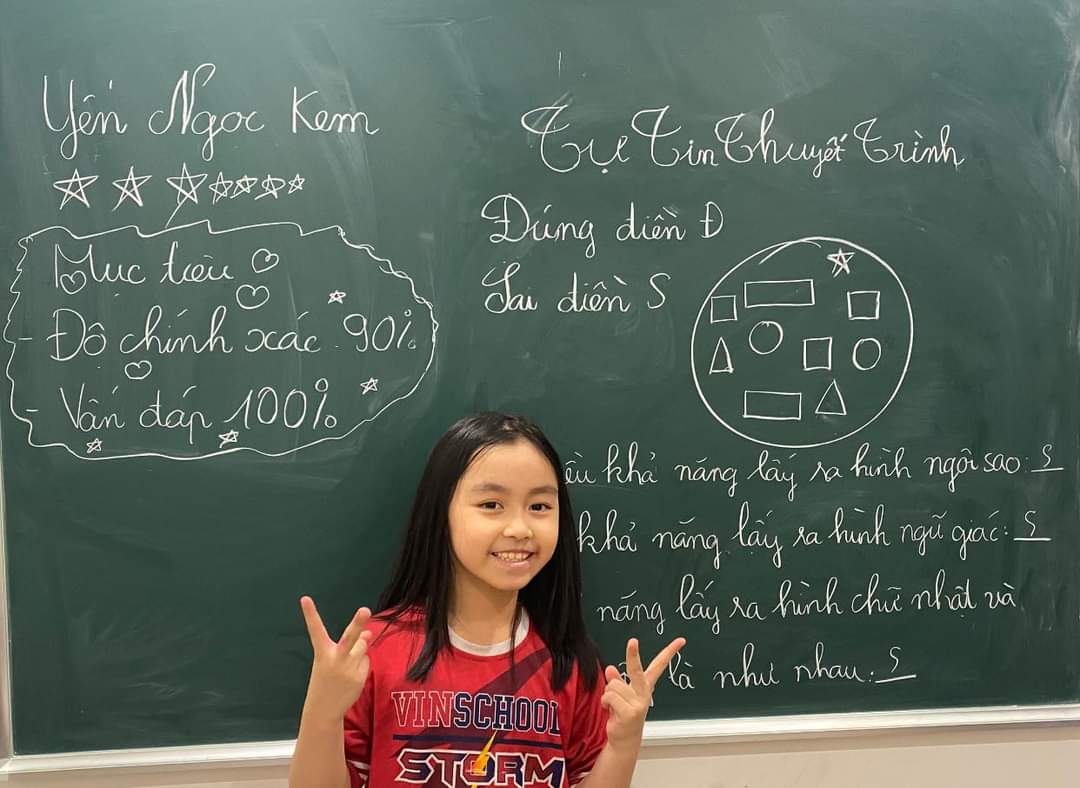 Yến Ngọc Kem
Mục tiêu
- Độ chính xác 90%
- Vấn đáp 100%
Tự Tin Thuyết Trình
Đúng điền Đ
Sai điền S
khả năng lấy ra hình ngôi sao: S
khả năng lấy ra hình ngũ giác: S
năng lấy ra hình chữ nhật và
là như nhau: S
VINSCHOOL
STORM